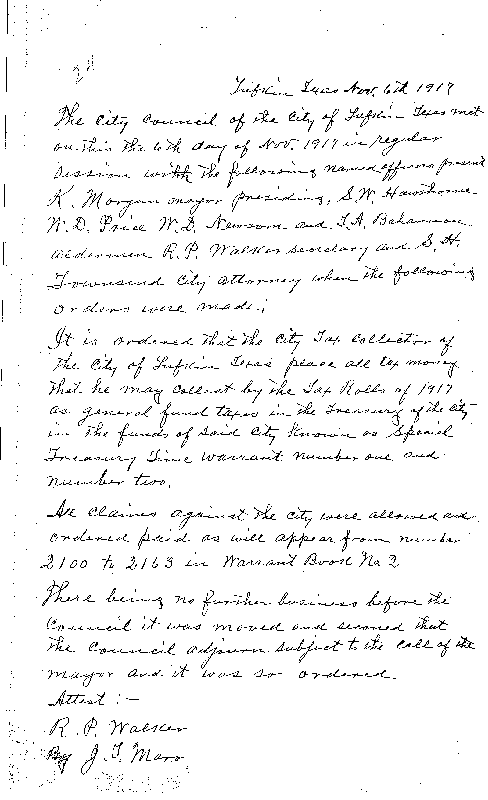 Lufkin Texas Nov. 6th 1917
The City Council of the City of Lufkin Texas met
on this the 6th day of Nov. 1917 in regular
Session with the following named officers present
K. Morgan mayor presiding, S.W. Hawthorne
W.D. Price W.D. Newsom and
aldermen R.P. Walker secretary and S.H.
Townsend City Attorney when the following
orders were made:
It is ordered that the City Tax Collector of
the City of Lufkin Texas place all tax money
that he may collect by the Tax Rolls of 1917
as general fund taxes in the Treasury of the City
in the funds of said City known as Special
Treasury Time Warrant number one and
number two.
All claims against the city were allowed and
ordered paid as will appear from number
2100 to 2163 in Warrant Book No 2
There being no further business before the
Council it was moved and seconed that
the Council adjourn subject to the call of the
mayor and it was so ordered.
Attest :-
R. P. Walker
By J. T. Maro